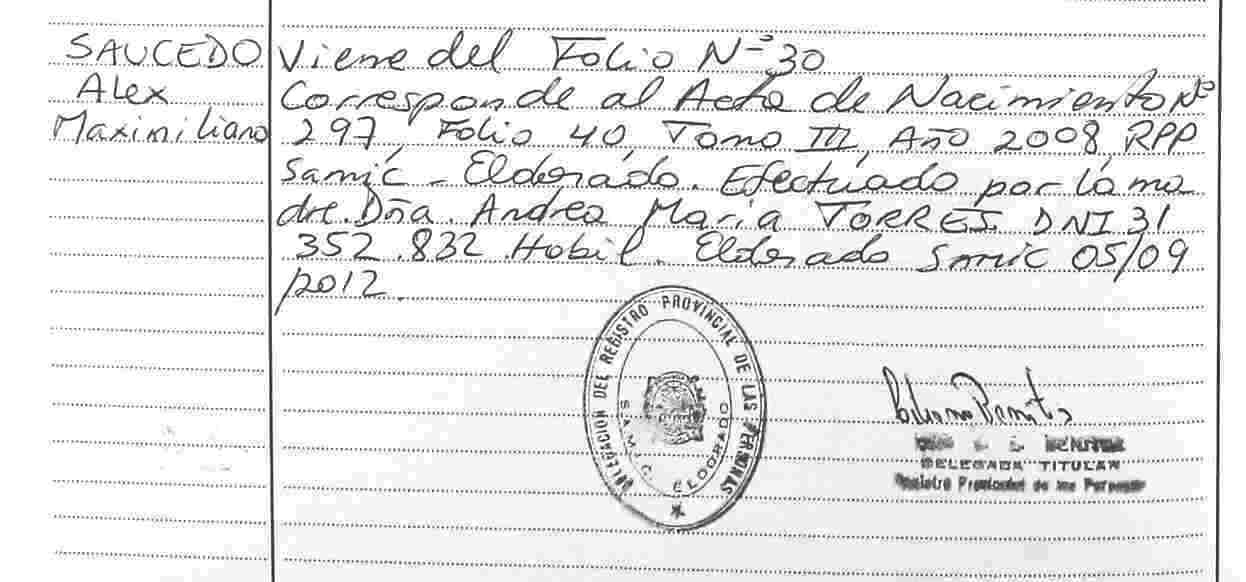 SAUCEDO
Alex
Maximiliano
Viene del Folio Nº 30
Corresponde al Acta de Nacimiento Nº
297, Folio 40, Tomo III, Año 2008, RPP
Samic - Eldorado. Efectuado por la ma
dre. Dña. Andrea Maria TORRES DNI 31
352.832 Habil. Eldorado Samic 05/09
/2012.
DELEGACION DEL REGISTRO PROVINCIAL DE LAS PERSONAS
S.A.M.I.C. ELDORADO
DELEGADA TITULAR
Registro Provincial de las Personas